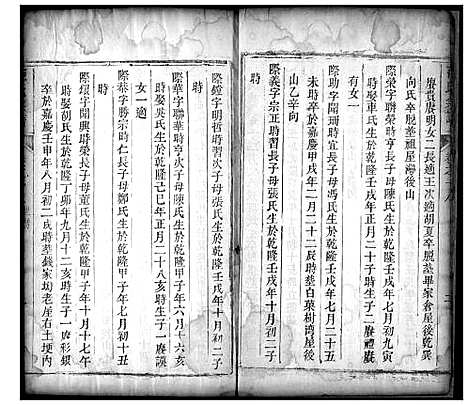 賡貴賡明女二長適王次適胡夏卒脱塟畢家倉屋後乾巽
向氏卒脱塟祖星灣後山
際榮字聯榮時亨長子母陳氏生於乾隆壬戌年七月初九寅
時娶車氏生於乾隆壬戌年七月二十時生子二賡禮賡
有女一
際助字開珊時宜長子母馮氏生於乾隆壬戌年二月二十五
未時卒於嘉慶甲戌年二月二十二辰時塟白菓樹灣屋後
山乙辛向
際義字宗正時習長子母張氏生於乾隆壬戌年十月初二子
時
際鐘字明哲時習次子母張氏生於乾隆壬戌年十月初二子
時
際華字聯華時亨次子母陳氏生於乾隆甲子年六月十六亥
時娶吳氏生於乾隆己巳年正月二十八亥時生子一賡謨
女一適
際泰字勝宗時仁長子母鄭氏生於乾隆甲子年七月初十丑
時娶胡氏生於乾隆丁卯年九月十二亥時生子一賡彩
際環字開興時榮長子母董氏生於乾隆甲子年十月十七午
卒於嘉慶壬申年八月初二戌時塟錢家坳老屋右土埂內